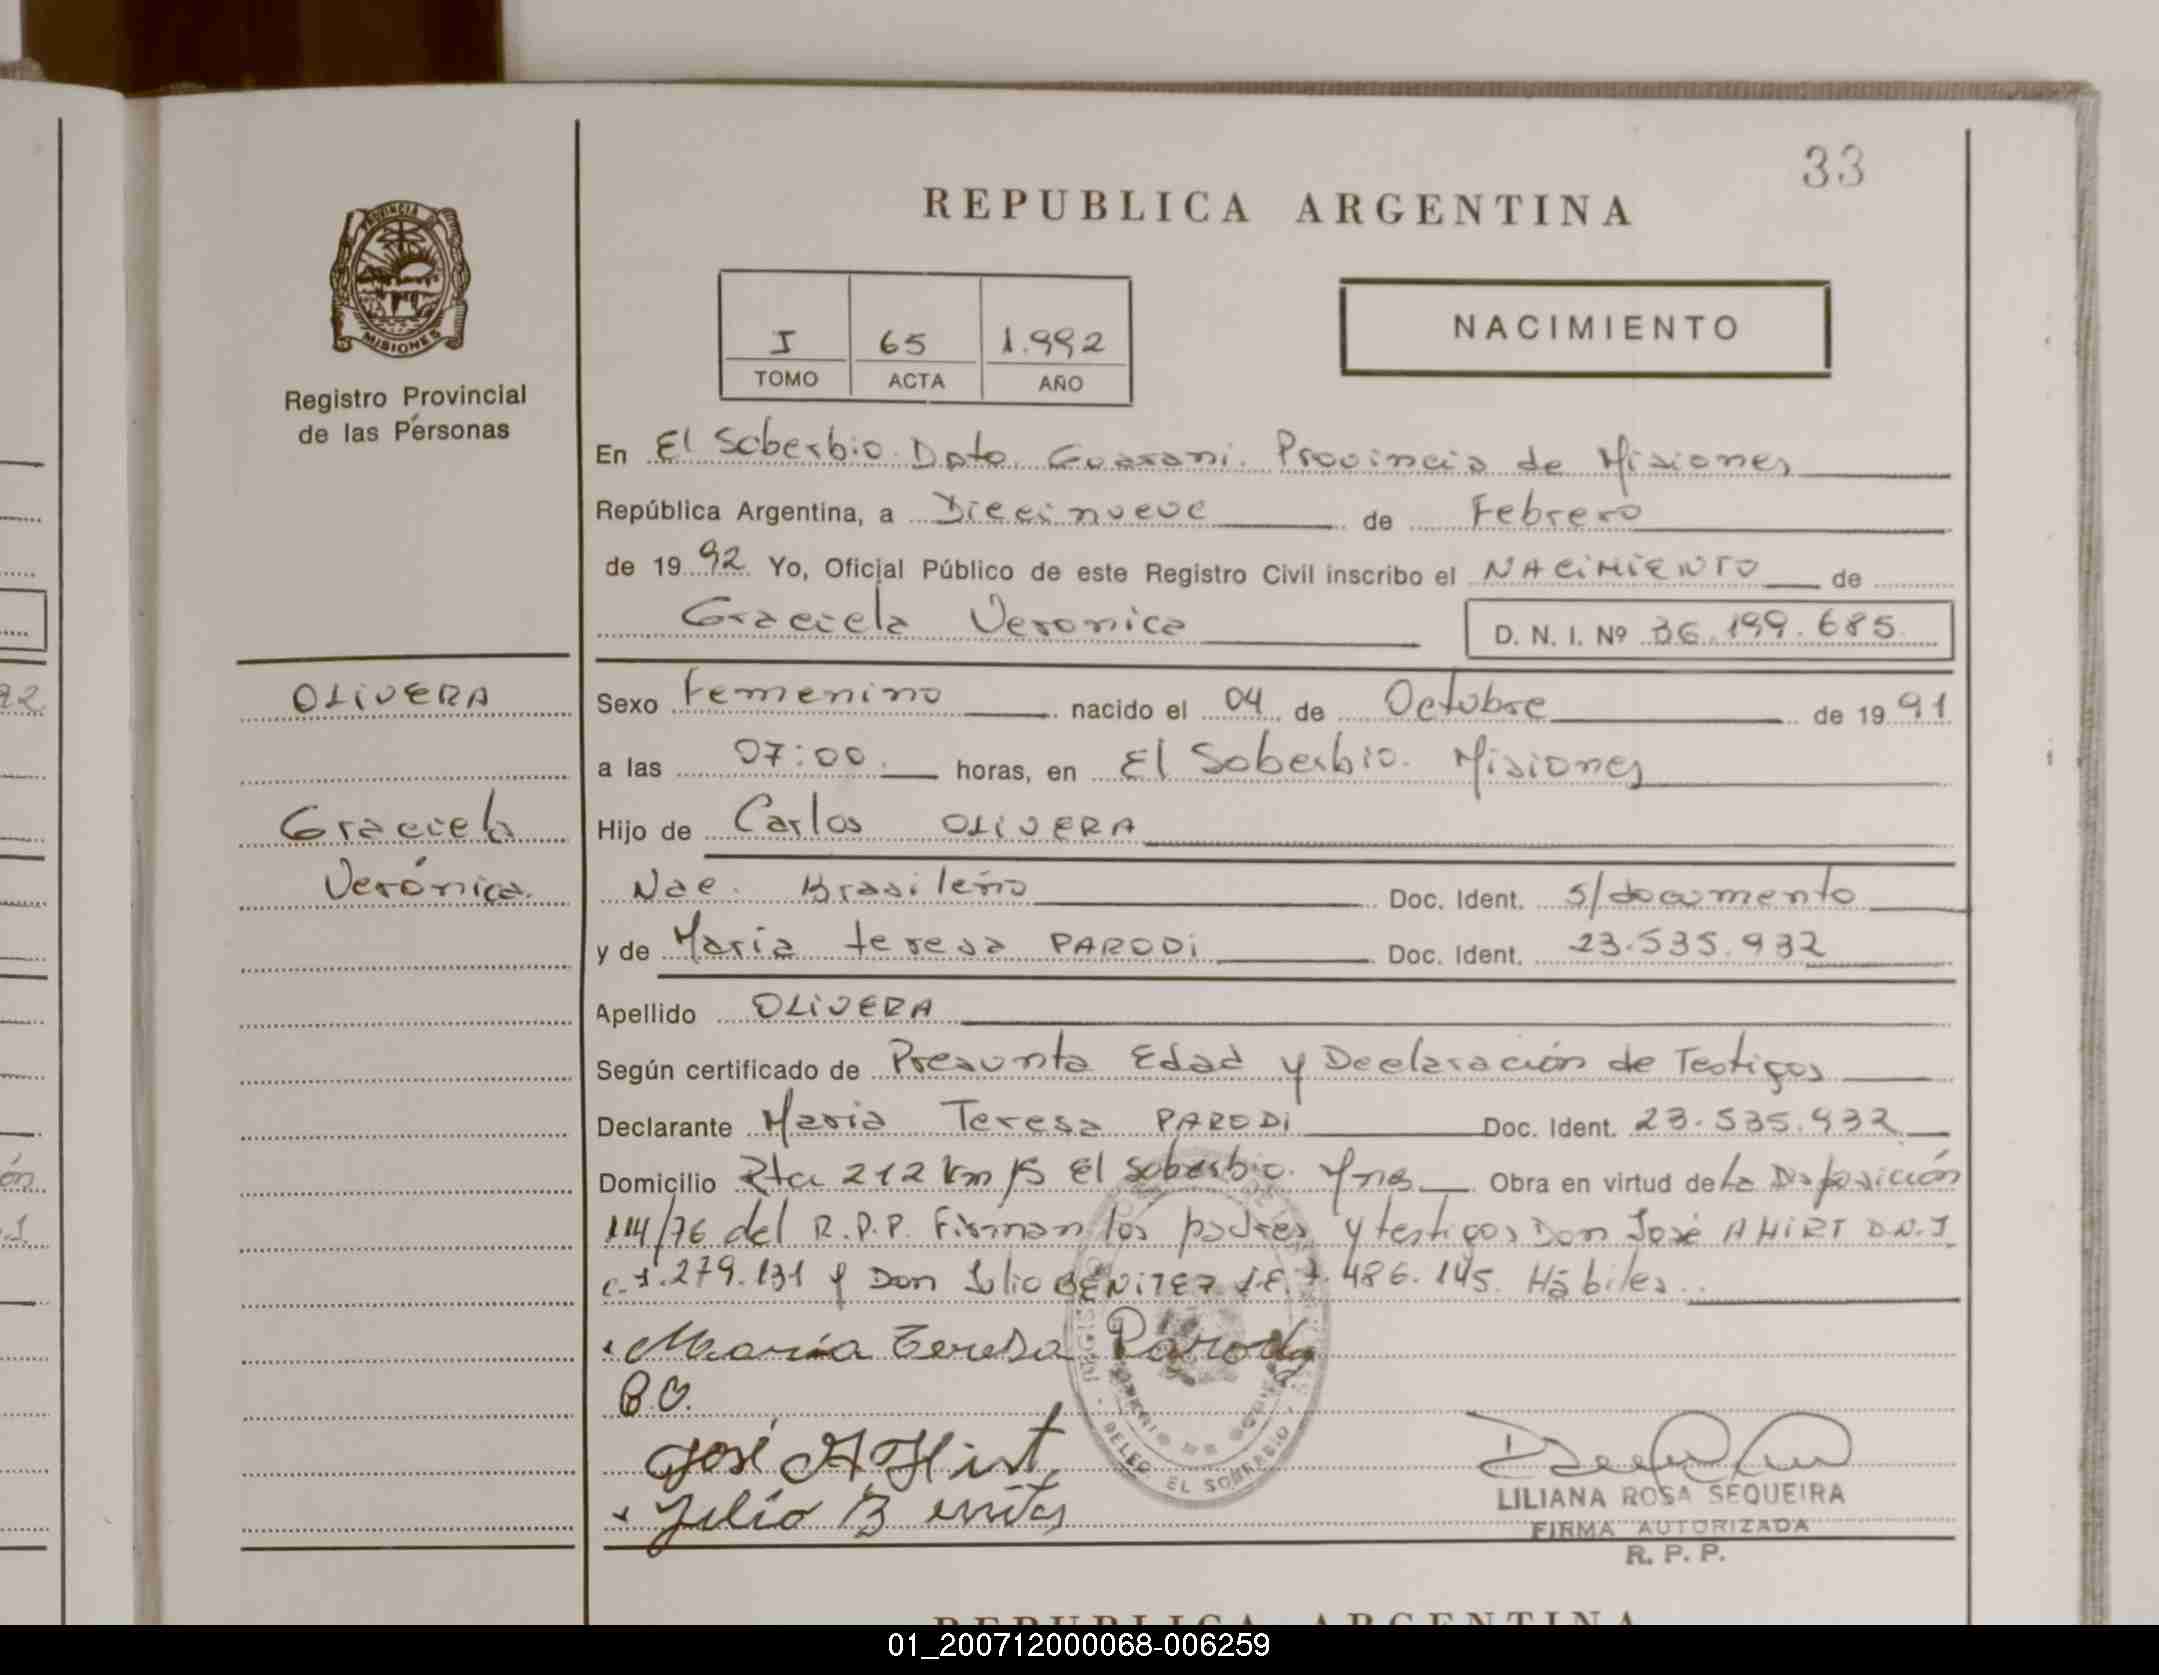 33
REPUBLICA ARGENTINA
PROVINCIA
MISIONES
Registro Provincial
de las Personas
I 65 1.992
TOMO ACTA AÑO
NACIMIENTO
En El Soberbio. Dpto. Guarani. Provincia de Misiones
República Argentina, a Diecinueve de Febrero
de 1992 Yo, Oficial Público de este Registro Civil inscribo el NACIMIENTO de
Graciela Veronica D. N. I. Nº 36.199.685
OLIVERA
Graciela
Verónica.
Sexo Femenino nacido el 04 de Octubre de 1991
a las 07:00. horas, en El Soberbio. Misiones
Hijo de Carlos OLIVERA
Nac. Brasileño Doc. Ident. s/documento
y de Maria teresa PARODI Doc. Ident. 23.535.932
Apellido OLIVERA
Según certificado de Presunta Edad y Declaración de Testigos
Declarante Maria Teresa PARODI Doc. Ident. 23.535.932
Domicilio Rta 212 Km 15 El Soberbio. Mnes Obra en virtud de La Disposición
114/76 del R.P.P. Firman los padres y testigos Don José A HIRT D.N.I
c.7.279.131 y Don Julio BENITEZ L.E. 7.486.145. Hábiles.
Maria Teresa Parody
B.O.
José A Hirt
Julio Benites
DELEG. EL SOBERBIO
LILIANA ROSA SEQUEIRA
FIRMA AUTORIZADA
R. P. P.
REPUBLICA ARGENTINA
01_200712000068-006259